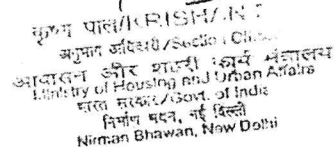 कृष्ण पाल/KRISHAN
अनुभाग अधिकारी/Section
आवासन और शहरी कार्य मंत्रालय
Ministry of Housing and Urban Affairs
भारत सरकार/Govt. of India
निर्माण भवन, नई दिल्ली
Nirman Bhawan, New Delhi